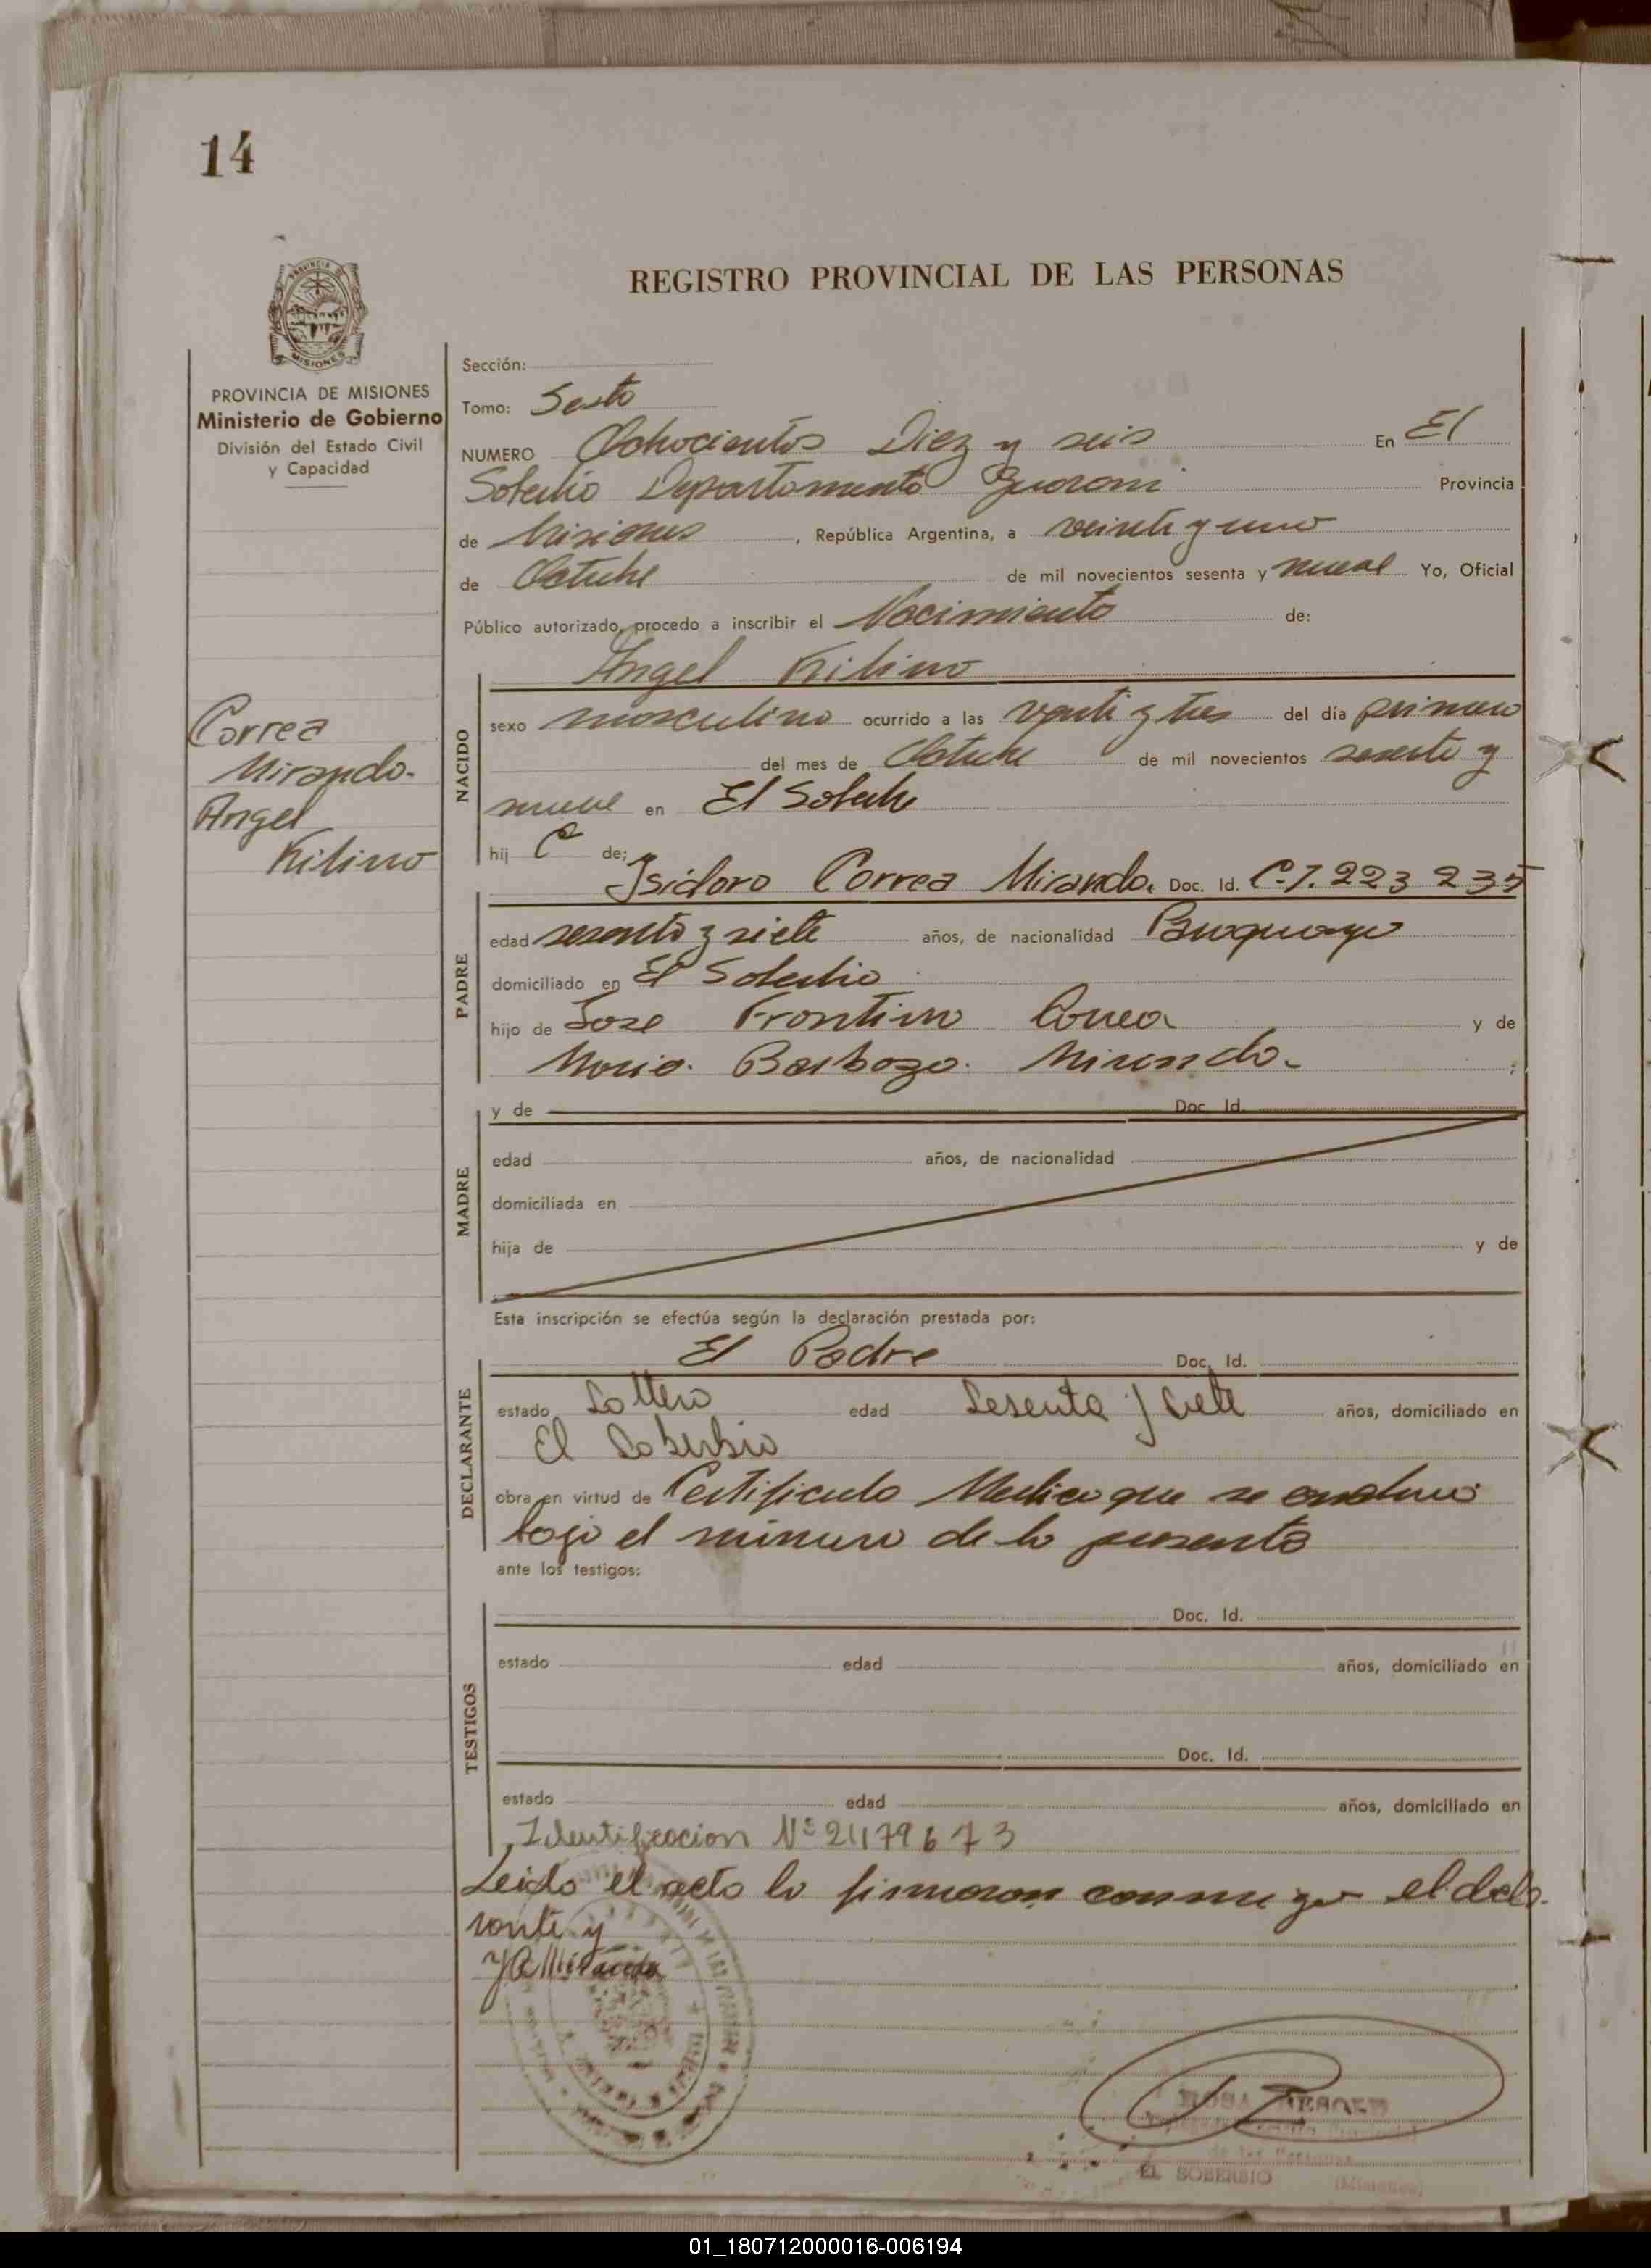 14
REGISTRO PROVINCIAL DE LAS PERSONAS
PROVINCIA DE MISIONES
Ministerio de Gobierno
División del Estado Civil
y Capacidad
Correa
Miranda.
Angel
Kilino
Sección:
Tomo: Sexto
NUMERO Ochocientos Diez y seis En El
Soberbio Departamento Guarani Provincia
de Misiones, República Argentina, a veinti y uno
de Octubre de mil novecientos sesenta y nueve Yo, Oficial
Público autorizado, procedo a inscribir el Nacimiento de:
Angel Kilino
NACIDO
sexo masculino ocurrido a las venti y tres del día primero
del mes de Octubre de mil novecientos sesenta y
nueve en El Soberbio
hij o de;
PADRE
Isidoro Correa Miranda. Doc. Id. C.I. 223 235
edad sesenta y siete años, de nacionalidad Paraguayo
domiciliado en El Soberbio
hijo de Jose Frontino Correa y de
Maria. Barboza. Miranda. ;
MADRE
y de Doc. Id.
edad años, de nacionalidad
domiciliada en
hija de y de
Esta inscripción se efectúa según la declaración prestada por:
DECLARANTE
El Padre Doc. Id.
estado Soltero edad Sesenta y Siete años, domiciliado en
El Soberbio
obra en virtud de Certificado Medico que se archivo
bajo el numero de la presente
ante los testigos:
TESTIGOS
Doc. Id.
estado edad años, domiciliado en
Doc. Id.
estado edad años, domiciliado en
Identificacion Nº 21179673
Leido el acta la firmaron conmigo el decla-
rante y
EL SOBERBIO (Misiones)
01_180712000016-006194